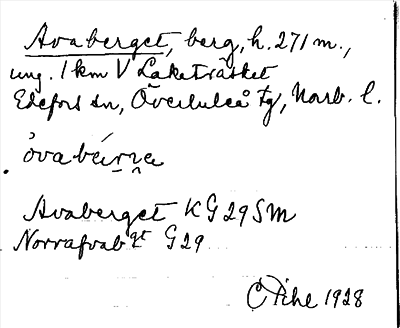 Avaberget, berg, h. 271 m.,
ung. 1 km V Laketräsket
Edefors sn, Överluleå tg, Norb. l.
òvabérɳe
Avaberget KG29SM
Norrafvabgt G29
C Pihl 1928